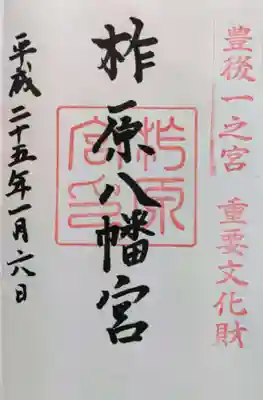 豊後一之宮 重要文化財
柞原八幡宮
柞原
宮印
平成二十五年一月六日